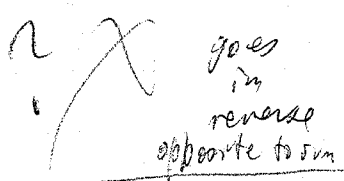 ? X goes
in
reverse
opposite to sun